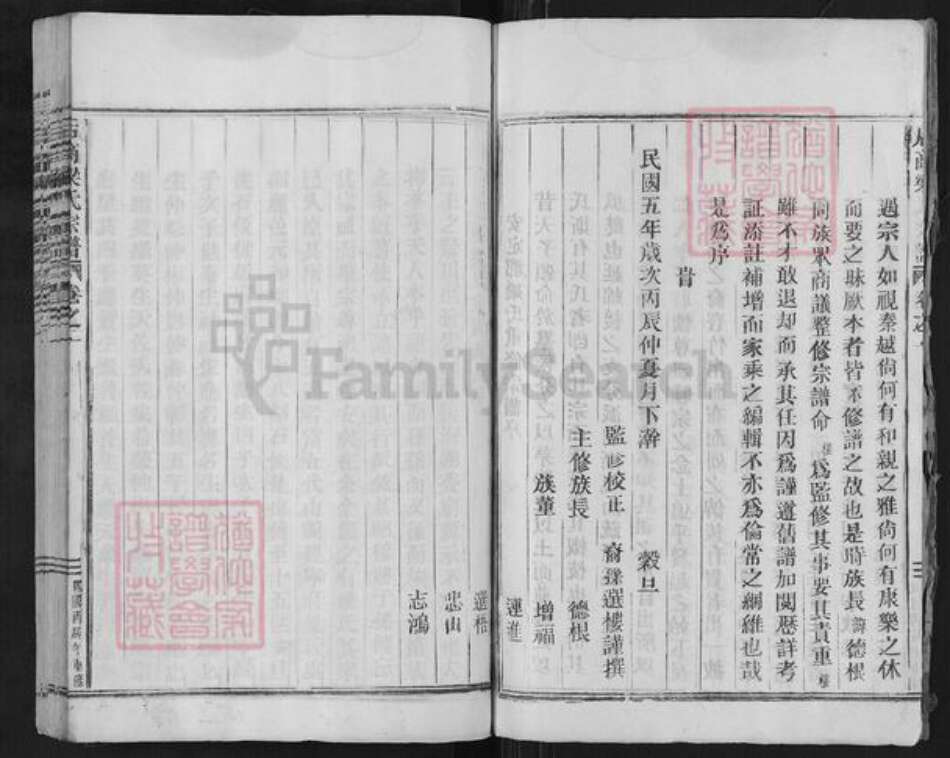 遇宗人如視秦越尙何有和親之雅尙何有康樂之休
而要之昧厥本者皆不修譜之故也是時族長諱德根
同族眾商議整修宗譜命樓爲監修其事要其責重樓
雖不才敢退却而承其任因爲謹遵舊譜加閱歷詳考
証添註補增而家乘之編輯不亦爲倫常之綱維也哉
是爲序
旹
民國五年歲次丙辰仲夏月下澣 穀旦
監修校正 裔孫選樓謹撰
主修族長 德根
族董 增福
連進
選梧
忠山
志鴻
梁氏宗譜 卷之一
民國丙辰年重修
FamilySearch